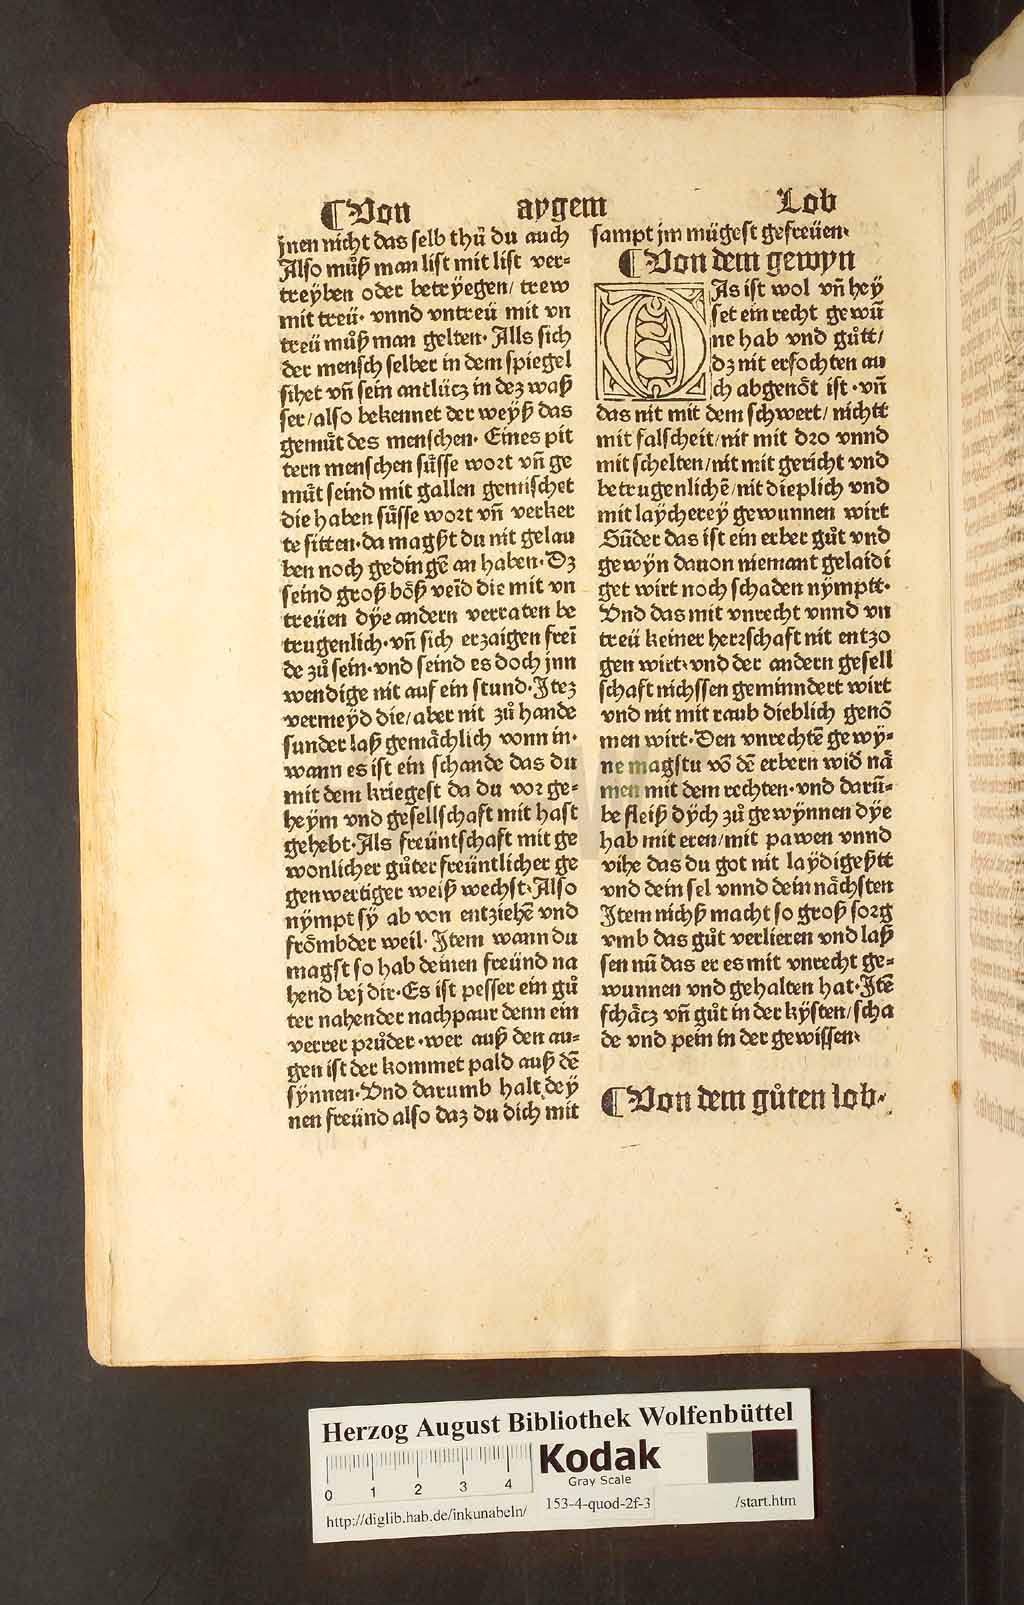 ¶Von aygem Lob
jnen nicht das selb thuͦ du auch
Also muͦß man list mit list ver⸗
treÿben oder betrÿegen/ trew
mit treü· vnnd vntreü mit vn
treü muͦß man gelten· Alls sich
der mensch selber in dem spiegel
sihet vñ sein antlücz in dez waß
ser/also bekennet der weÿß das
gemuͤt des menschen· Eines pit
tern menschen suͤsse wort vñ ge
muͤt seind mit gallen gemischet
die haben suͤsse wort vñ verker
te sitten·da magst du nit gelau
ben noch gedingē an haben· Dz
seind groß boͤß veīd die mit vn
treüen dÿe andern verraten be
trugenlich·vñ sich erzaigen freī
de zuͦ sein·vnd seind es doch jnn
wendige nit auf ein stund·Jtez
vermeÿd die/aber nit zuͦ hande
sunder laß gemaͤchlich vonn in·
wann es ist ein schande das du
mit dem kriegest da du vor ge⸗
heÿm vnd gesellschaft mit hast
gehebt·Als freüntschaft mit ge
wonlicher guͦter freüntlicher ge
genwertiger weiß wechst·Also
nÿmpt sÿ ab von entziehē vnd
froͤmbder weil· Jtem wann du
magst so hab deinen freünd na
hend bej dir·Es ist pesser ein guͦ
ter nahender nachpaur denn ein
verrer pruͦder·wer auß den au⸗
gen ist der kommet pald auß dē
sÿnnen·Vnd darumb halt deÿ
nen freünd also daz du dich mit
sampt jm mügest gefreüen·
¶Von dem gewyn
DAs ist wol vñ heÿ
set ein recht gewū
ne hab vnd guͦtt/
dz nit erfochten au
ch abgenöt ist ·vñ
das nit mit dem schwert/ nichtt
mit falscheit/nit mit dro vnnd
mit schelten/nit mit gericht vnd
betrugenlichē/nit dieplich vnd
mit laÿcherey gewunnen wirt
Sūder das ist ein erber guͦt vnd
gewÿn dauon niemant gelaidi
get wirt noch schaden nÿmptt·
Vnd das mit vnrecht vnnd vn
treü keiner herschaft nit entzo
gen wirt·vnd der andern gesell
schaft nichssen geminndert wirt
vnd nit mit raub dieblich genō
men wirt·Den vnrechtē gewÿ⸗
ne magstu vō dē erbern wid̕ nā
men mit dem rechten·vnd darū⸗
be fleiß dÿch zuͦ gewÿnnen dÿe
hab mit eren/mit pawen vnnd
vihe das du got nit laÿdigestt
vnd dein sel vnnd dein naͤchsten
Jtem nichß macht so groß sorg
vmb das guͦt verlieren vnd laß
sen nū das er es mit vnrecht ge⸗
wunnen vnd gehalten hat·Jtē
schaͤcz vñ guͦt in der kÿsten/scha
de vnd pein in der gewissen·
¶Von dem guͦten lob·
Herzog August Bibliothek Wolfenbüttel
0 1 2 3 4
Kodak
Gray Scale
http://diglib.hab.de/inkunabeln/ 153-4-quod-2f-3 /start.htm